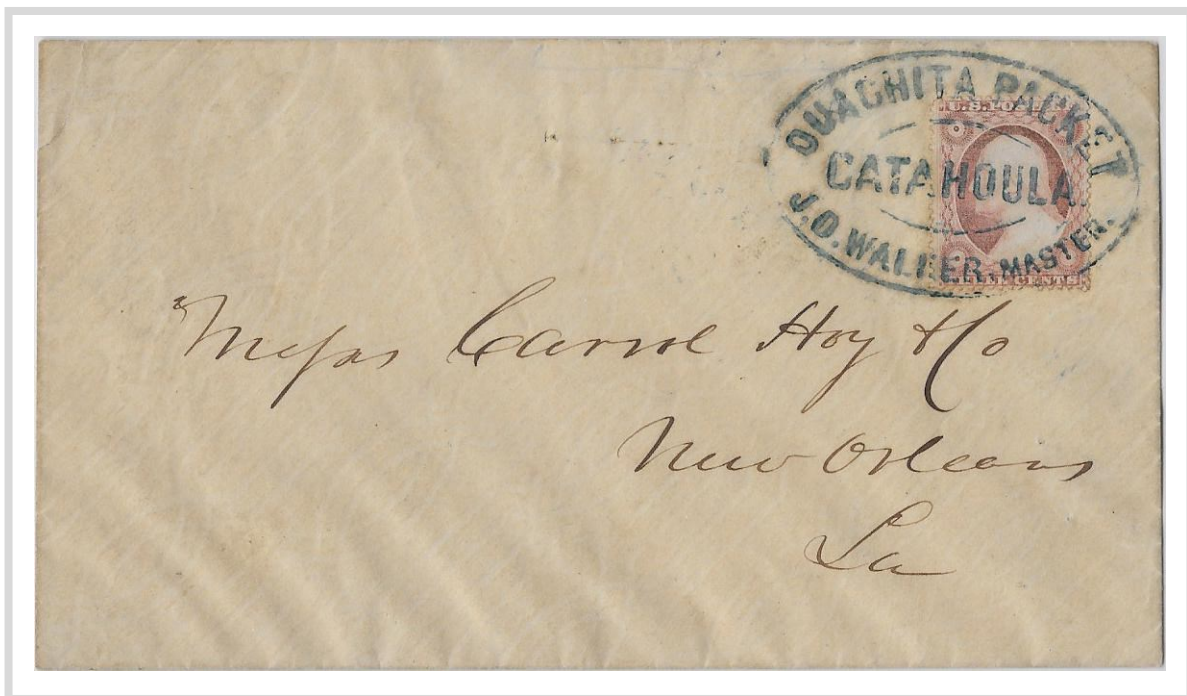 OUACHITA PACKET
CATAHOULA.
J.D. WALKER, MASTER.
U.S. POSTAGE
THREE CENTS
Messrs Carrol Hoy & Co
New Orleans
La